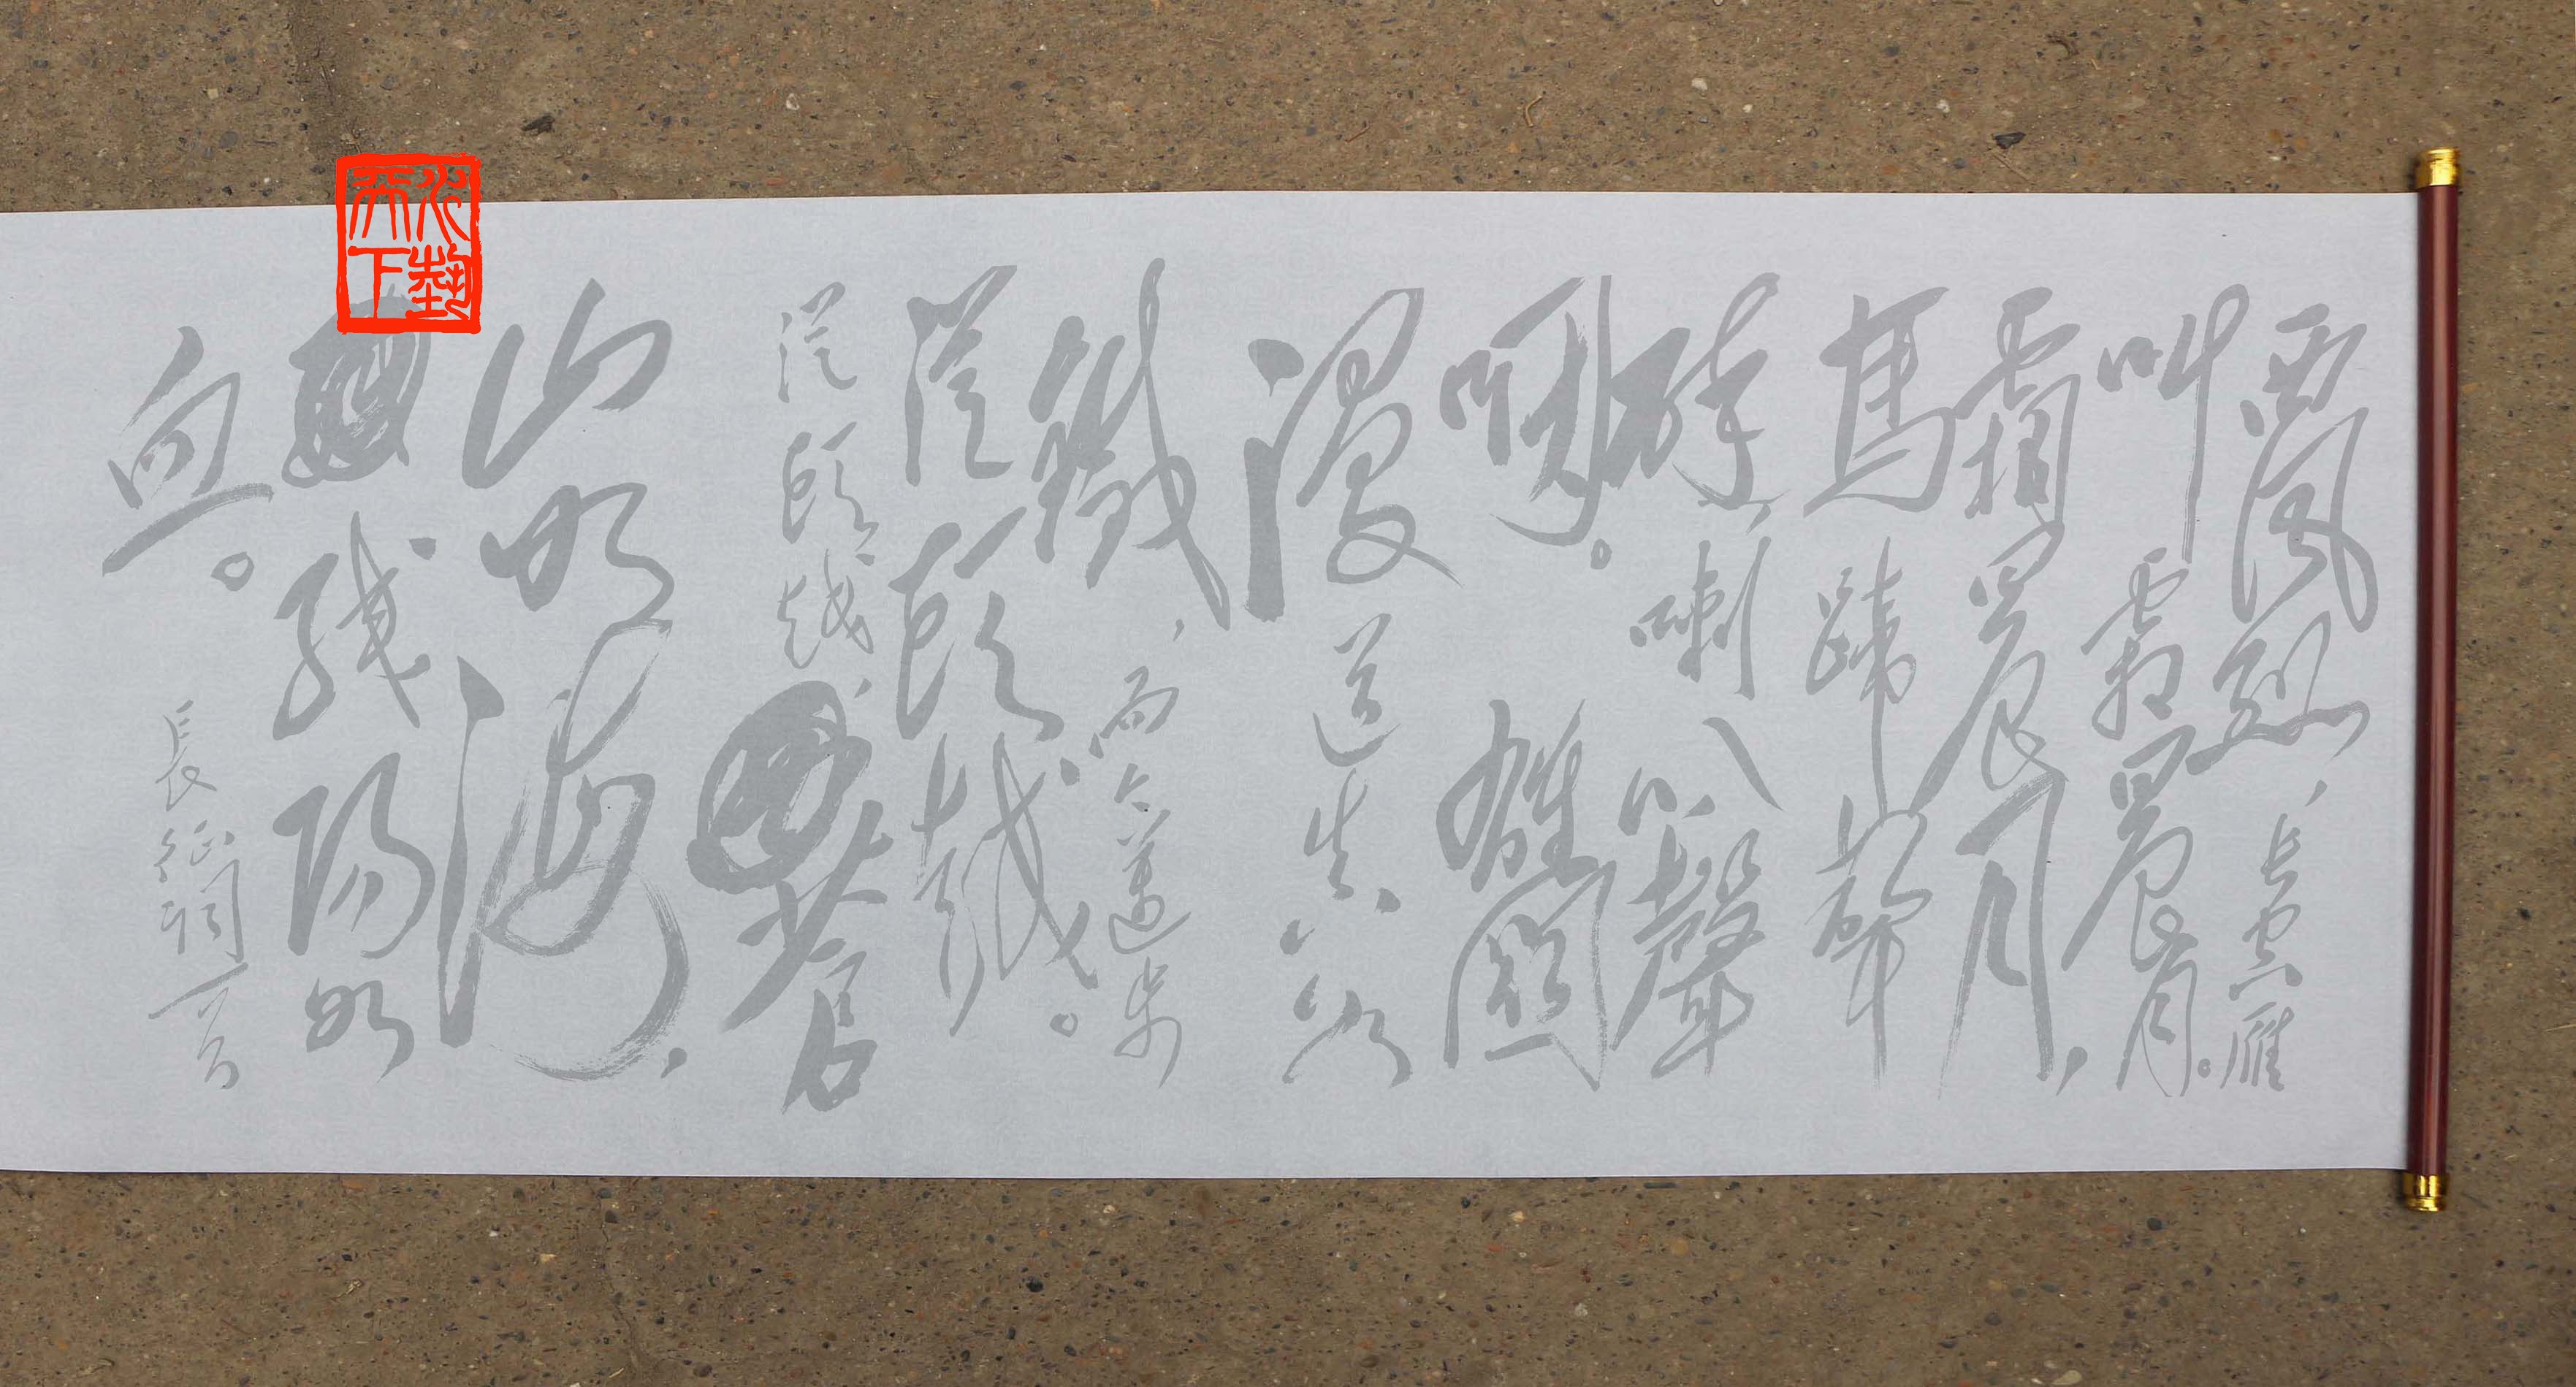 西風烈,長空雁
叫霜晨月。
霜晨月,
馬蹄聲
碎,喇叭聲
咽。雄關
漫道真如
鐵,而今邁步
從頭越。
從頭越,蒼
山如海,
殘陽如
血。
長征詞一首
水埶天下